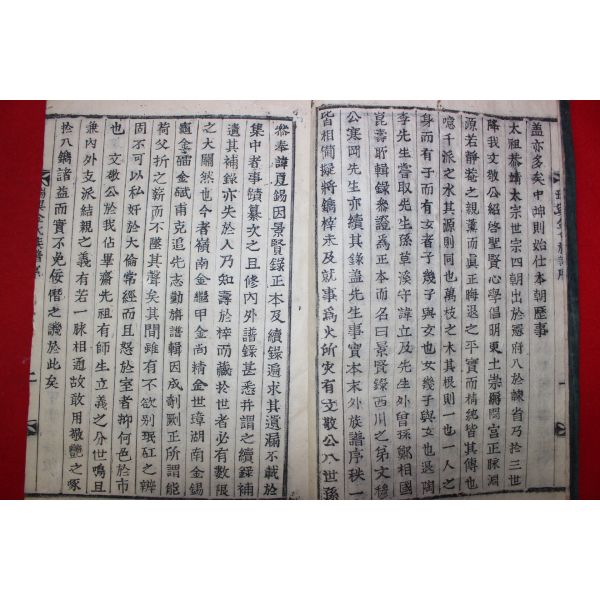 盖亦多矣中坤則始仕本朝歷事
太祖恭靖太宗世宗四朝出於憲府八於諫省乃拾三世
降我文敬公紹啓聖賢心學倡明東土崇嗣宮正脉淵
源若靜菴之親薰而眞正晦退之平實而精皆其傳也
噫千派之水其源則同也萬枝之木其根則一也一人之
身而有子而有女者子幾子與女也女幾子與女也退陶
李先生嘗取先生孫草溪守諱立及先生外曾孫鄭相國
崑壽所輯錄叅證爲正本而名曰景賢錄西川之弟文穆
公寒岡先生亦續其錄盖先生事實本末外族譜序秩一
皆相備擬將鋟梓未及就事爲火所灾有文敬公八世孫
叅奉諱夏錫因景賢錄正本及續錄遍求其遺漏不載於
集中者事蹟纂次之且修內外譜錄甚悉幷謂之續錄補
遺其補錄亦失於人乃知壽於梓而藏於世者必有數限
之大關然也今者嶺南金繼甲金尚精金世璋湖南金錫
金礌金斌甫克追先志動斯譜輯因成剞劂正所謂能
荷父析之薪而不墜其聲矣其間雖有不欲別珉砿之辨
固不可以私奸於大倫常經而且怒於室者抑何色於市
也 文敬公於我佔畢齋先祖有師生立義之分世鳴且
兼內外支派結親之義有若一脉相通故敢用敬艷之啄
於八鐫諸益而實不免佞僭之譏於此矣